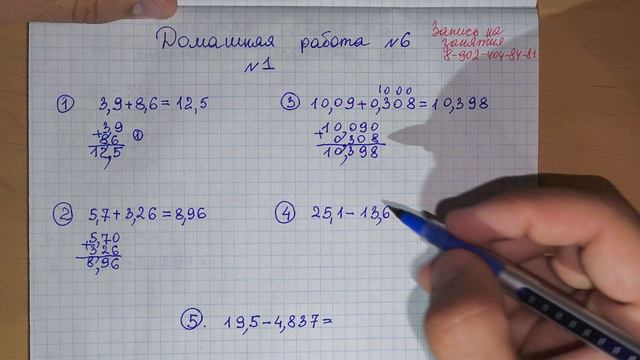 Домашняя работа №6
Запись на
занятия
8-902-404-84-81
№1
① 3,9+8,6=12,5
+3,9
8,6
12,5
①
③ 10,09+0,308=10,398
10 00
+10,090
0,308
10,398
② 5,7+3,26=8,96
+5,70
3,26
8,96
④ 25,1-13,6
⑤. 19,5-4,837=